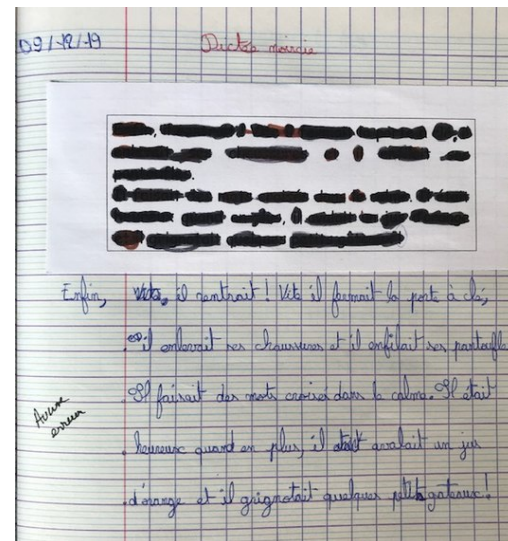 09/12/19
Dictée noircie
Enfin, Vite, il rentrait ! Vite il fermait la porte à clé,
il enlevait ses chaussures et il enfilait ses pantoufle
Il faisait des mots croisés dans le calme. Il était
Aucune
erreur
heureux quand en plus, il avalait un jus
d'orange et il grignotait quelques petits gateaux !